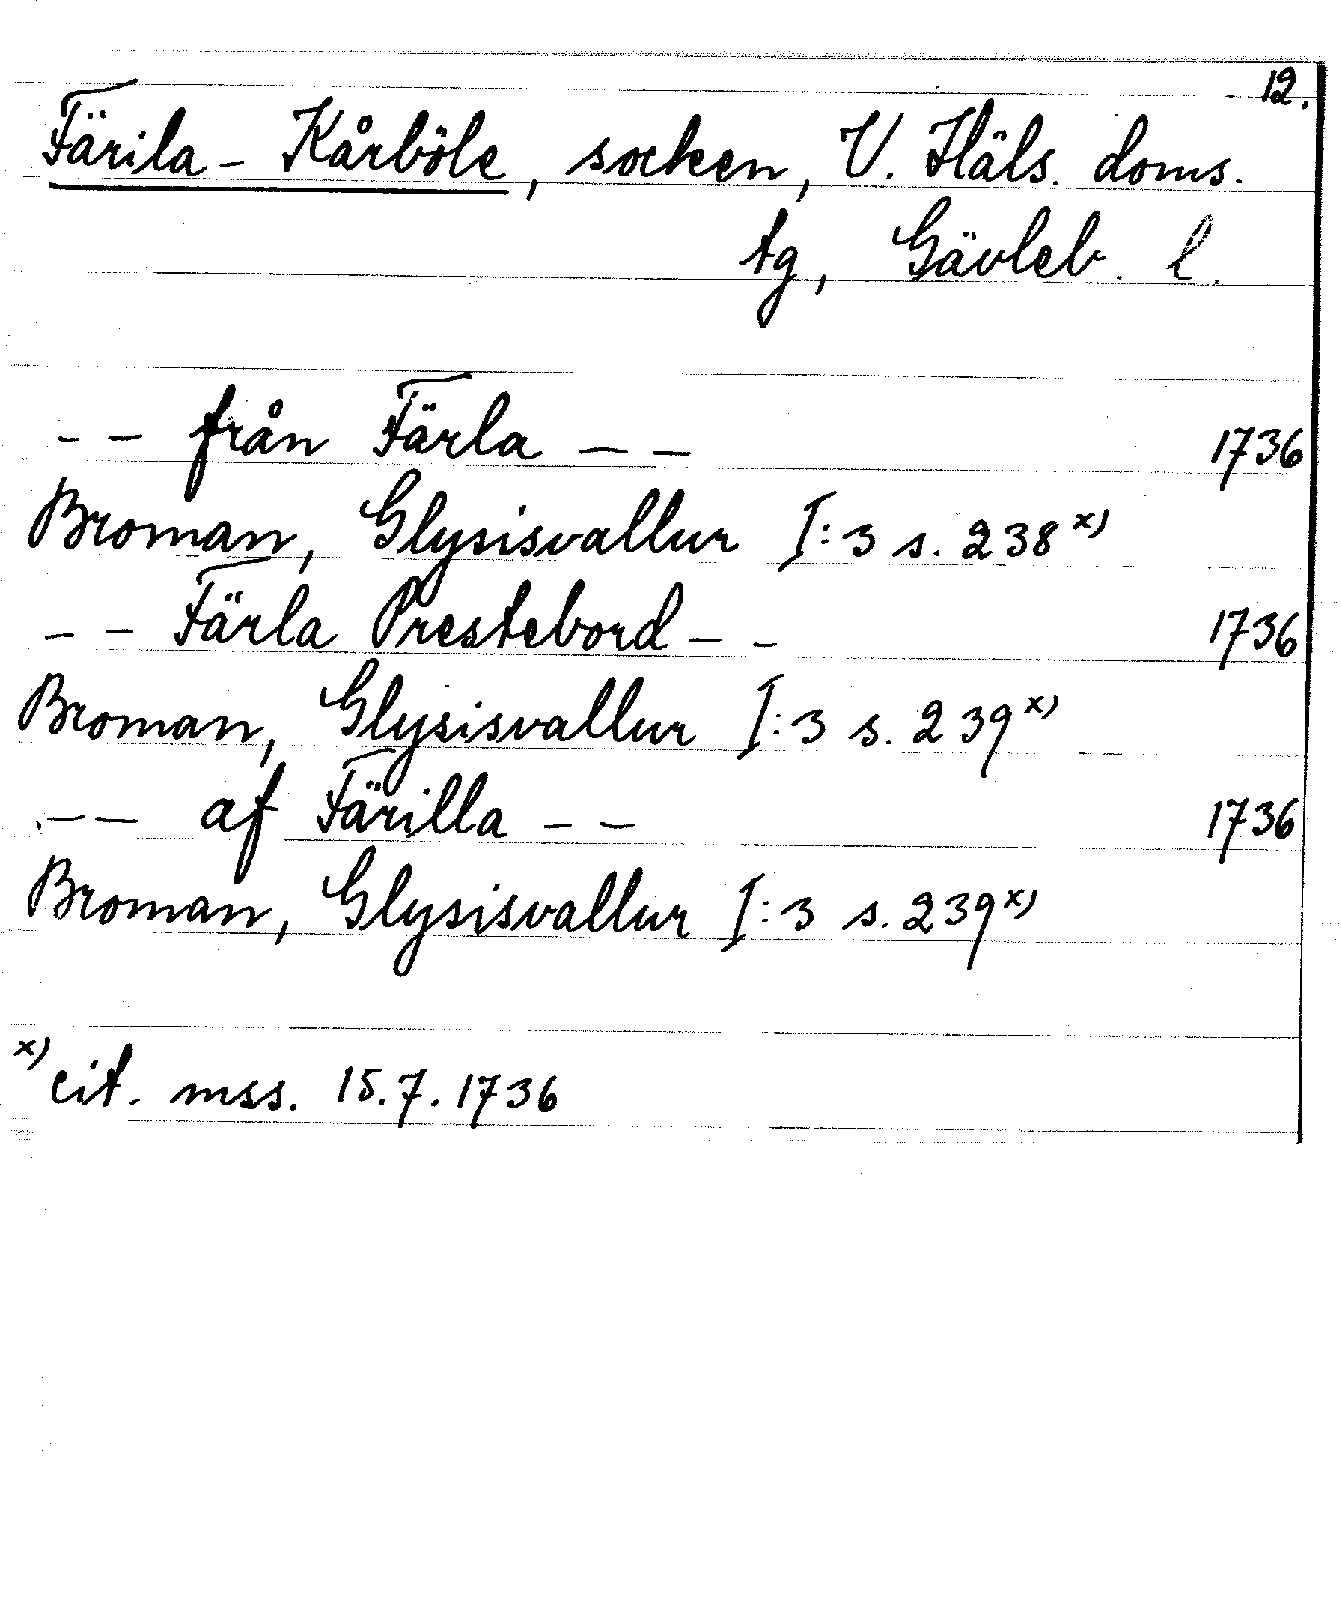 12.
Färila - Kårböle, socken, V. Häls. doms.
tg, Gävleb. l.
- - från Färla - - 1736
Broman, Glysisvallur I:3 s. 238 x)
- - Färla Prestebord - - 1736
Broman, Glysisvallur I:3 s. 239 x)
- - af Färilla - - 1736
Broman, Glysisvallur I:3 s. 239 x)
x) cit. mss. 15.7.1736